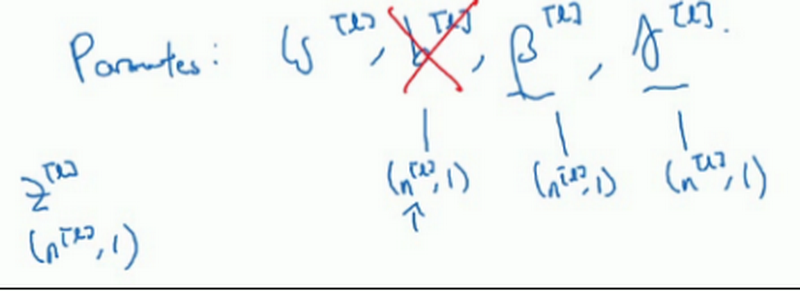 Parmutes: W^[l], b^[l], β^[l], γ^[l].
(n^[l], 1) (n^[l], 1) (n^[l], 1)
z^[l]
(n^[l], 1)